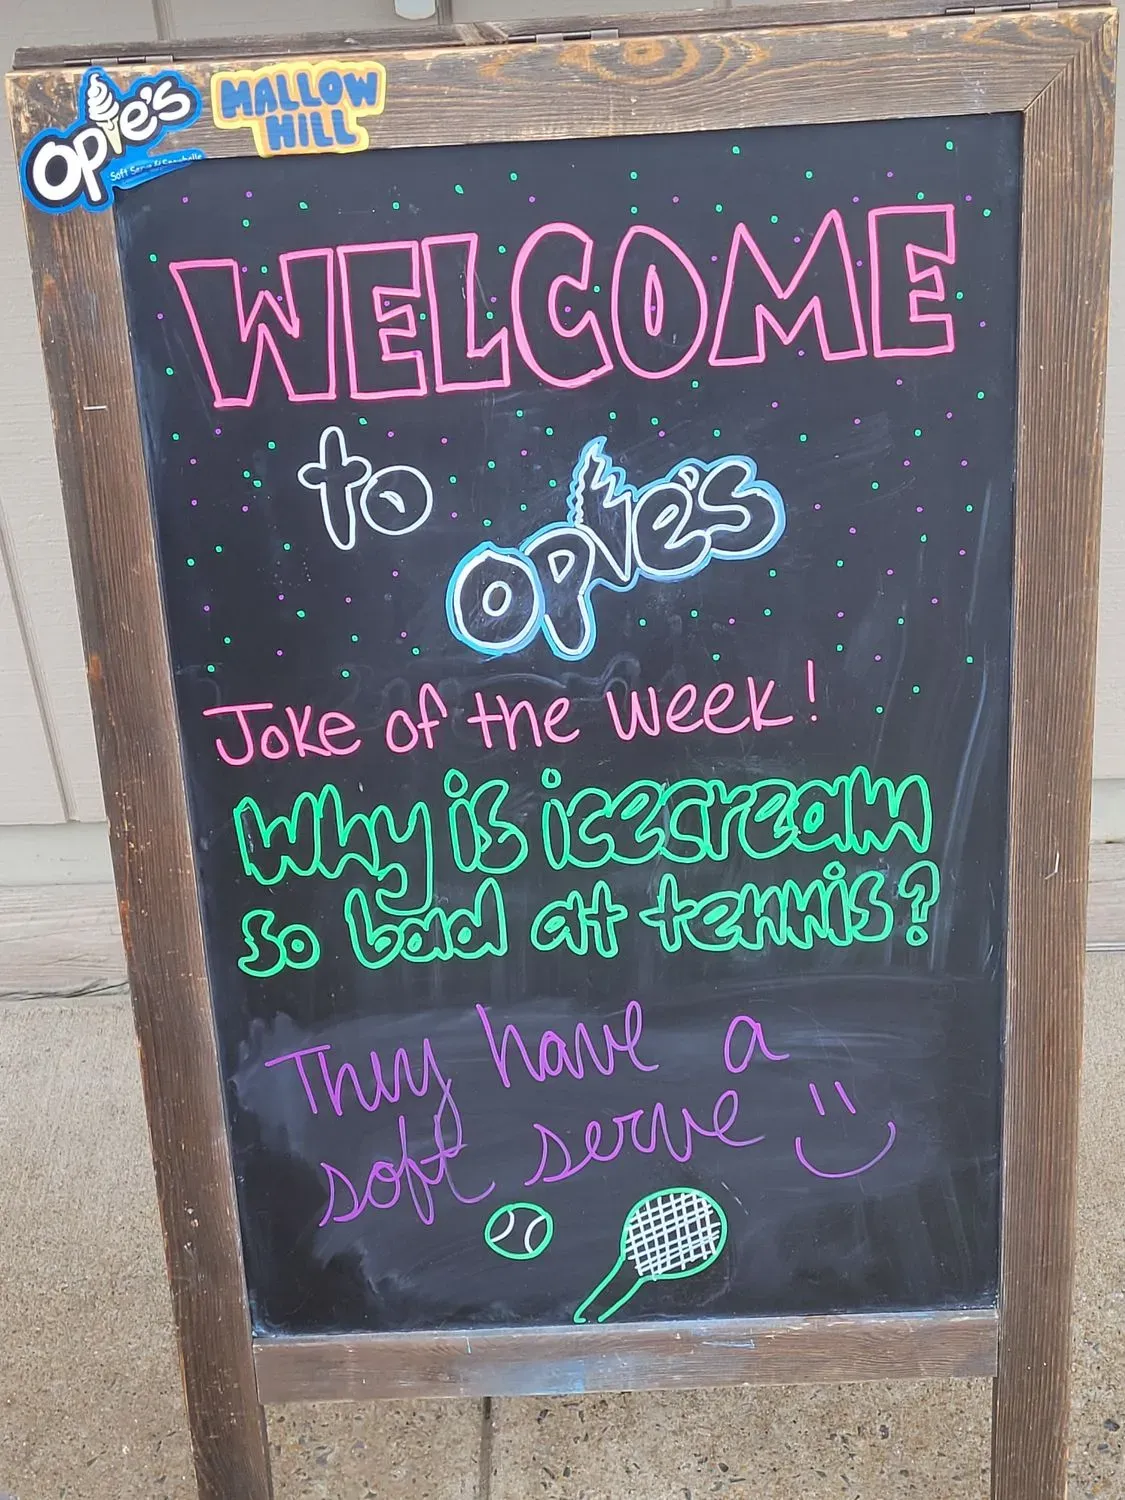 Opie's
Soft Serve & Snowballs
MALLOW
HILL
WELCOME
to
OPIE'S
Joke of the week!
Why is icecream
so bad at tennis?
They have a
soft serve